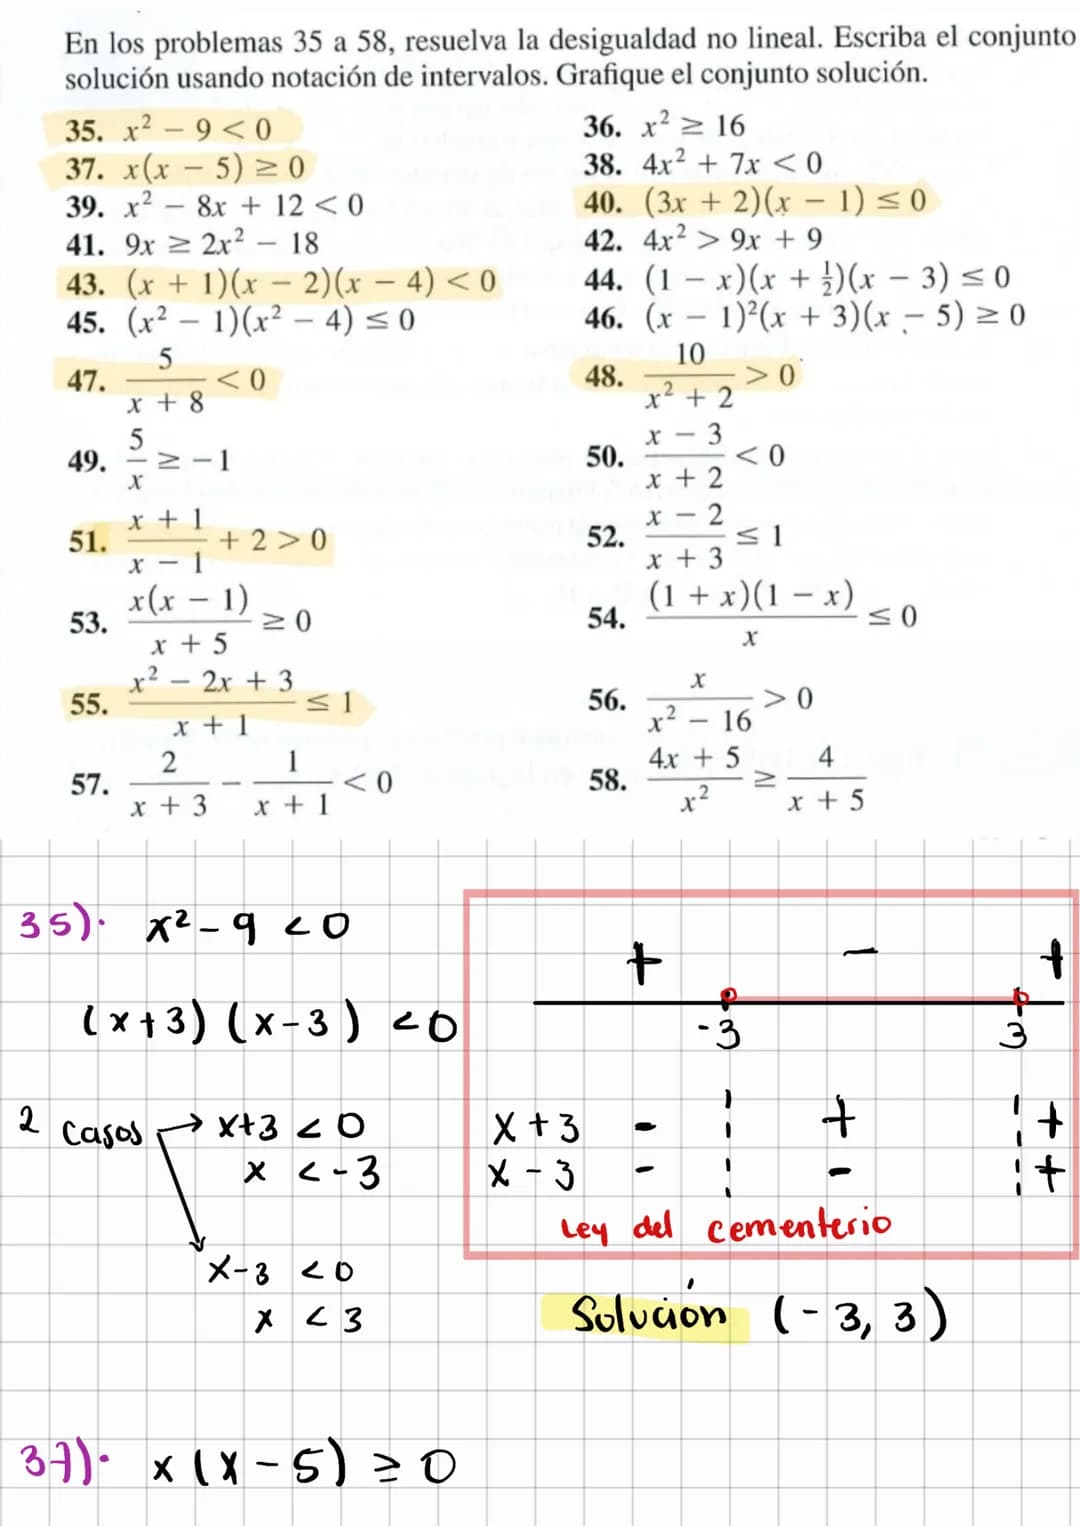 En los problemas 35 a 58, resuelva la desigualdad no lineal. Escriba el conjunto
solución usando notación de intervalos. Grafique el conjunto solución.
35. x² − 9 < 0
36. x² ≥ 16
37. x(x − 5) ≥ 0
38. 4x² + 7x < 0
39. x² − 8x + 12 < 0
40. (3x + 2)(x − 1) ≤ 0
41. 9x ≥ 2x² − 18
42. 4x² > 9x + 9
43. (x + 1)(x − 2)(x − 4) < 0
44. (1 − x)(x + ½)(x − 3) ≤ 0
45. (x² − 1)(x² − 4) ≤ 0
46. (x − 1)²(x + 3)(x − 5) ≥ 0
47. 5/(x + 8) < 0
48. 10/(x² + 2) > 0
49. 5/x ≥ −1
50. (x − 3)/(x + 2) < 0
51. (x + 1)/(x − 1) + 2 > 0
52. (x − 2)/(x + 3) ≤ 1
53. x(x − 1)/(x + 5) ≥ 0
54. (1 + x)(1 − x)/x ≤ 0
55. (x² − 2x + 3)/(x + 1) ≤ 1
56. x/(x² − 16) > 0
57. 2/(x + 3) − 1/(x + 1) < 0
58. (4x + 5)/x² ≥ 4/(x + 5)
35). x² - 9 < 0
(x+3) (x-3) < 0
2 casos → x+3 < 0
x < -3
x-3 < 0
x < 3
+ - +
-3 3
x+3 - + +
x-3 - - +
Ley del cementerio
Solución (-3, 3)
37). x (x-5) ≥ 0